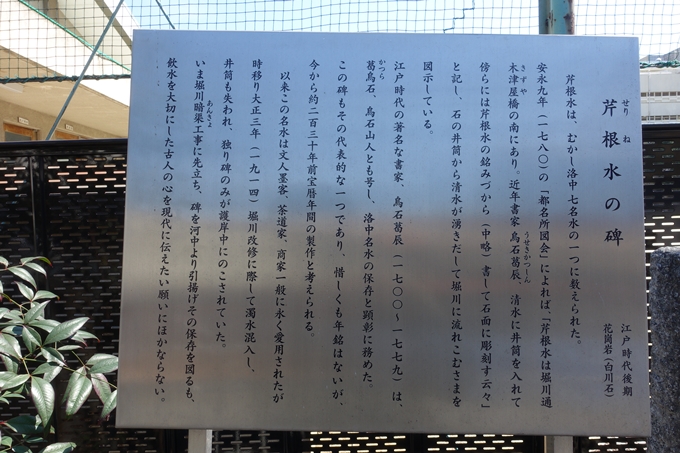 芹根水の碑
せりね
江戸時代後期
花崗岩(白川石)
芹根水は、むかし洛中七名水の一つに数えられた。
安永九年(一七八〇)の「都名所図会」によれば、「芹根水は堀川通
木津屋橋の南にあり。近年書家 烏石葛辰、清水に井筒を入れて
きずや
うせきかつしん
傍らには芹根水の銘みづから(中略)書して石面に彫刻す云々」
と記し、石の井筒から清水が湧きだして堀川に流れこむさまを
図示している。
江戸時代の著名な書家、烏石葛辰(一七〇〇〜一七七九)は、
葛烏石、烏石山人とも号し、洛中名水の保存と顕彰に務めた。
かつら
この碑もその代表的な一つであり、惜しくも年銘はないが、
今から約二百三十年前宝暦年間の製作と考えられる。
以来この名水は文人墨客、茶道家、商家一般に永く愛用されたが
時移り大正三年(一九一四)堀川改修に際して濁水混入し、
井筒も失われ、独り碑のみが護岸中にのこされていた。
いま堀川暗渠工事に先立ち、碑を河中より引揚げその保存を図るも、
あんきょ
飲水を大切にした古人の心を現代に伝えたい願いにほかならない。